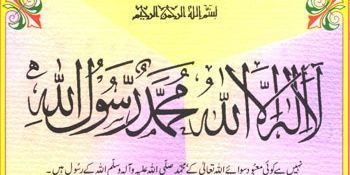 بسم الله الرحمن الرحيم
لَا إِلٰهَ إِلَّا اللهُ مُحَمَّدٌ رَّسُولُ اللهِ
نہیں ہے کوئی معبود سوائے اللہ تعالیٰ کے محمد صلی اللہ علیہ وآلہ وسلم اللہ کے رسول ہیں۔